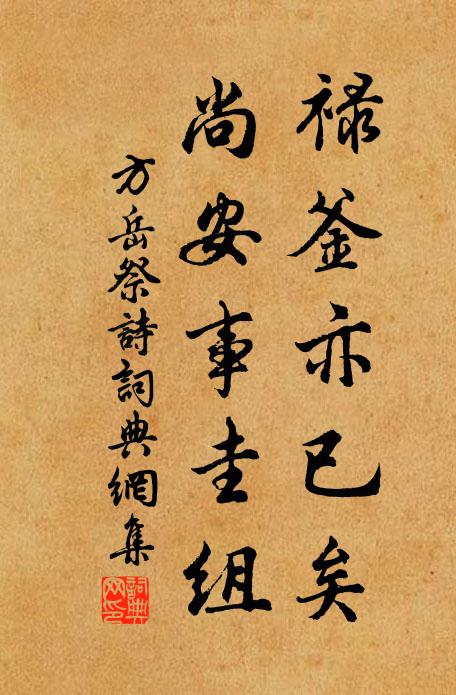 禄釜亦已矣
尚安事圭组
方岳祭詩詞典網集
詞典
网印